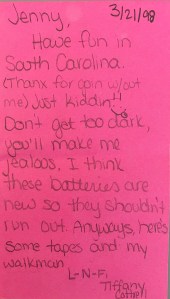 Jenny,
3/21/98
Have fun in
South Carolina.
(Thanx for goin w/out
me) Just kiddin!!
Don't get too dark,
you'll make me
jealous. I think
these batteries are
new so they shouldn't
run out. Anyways, here's
some tapes and my
walkman
L-N-F,
Tiffany
Cottrell